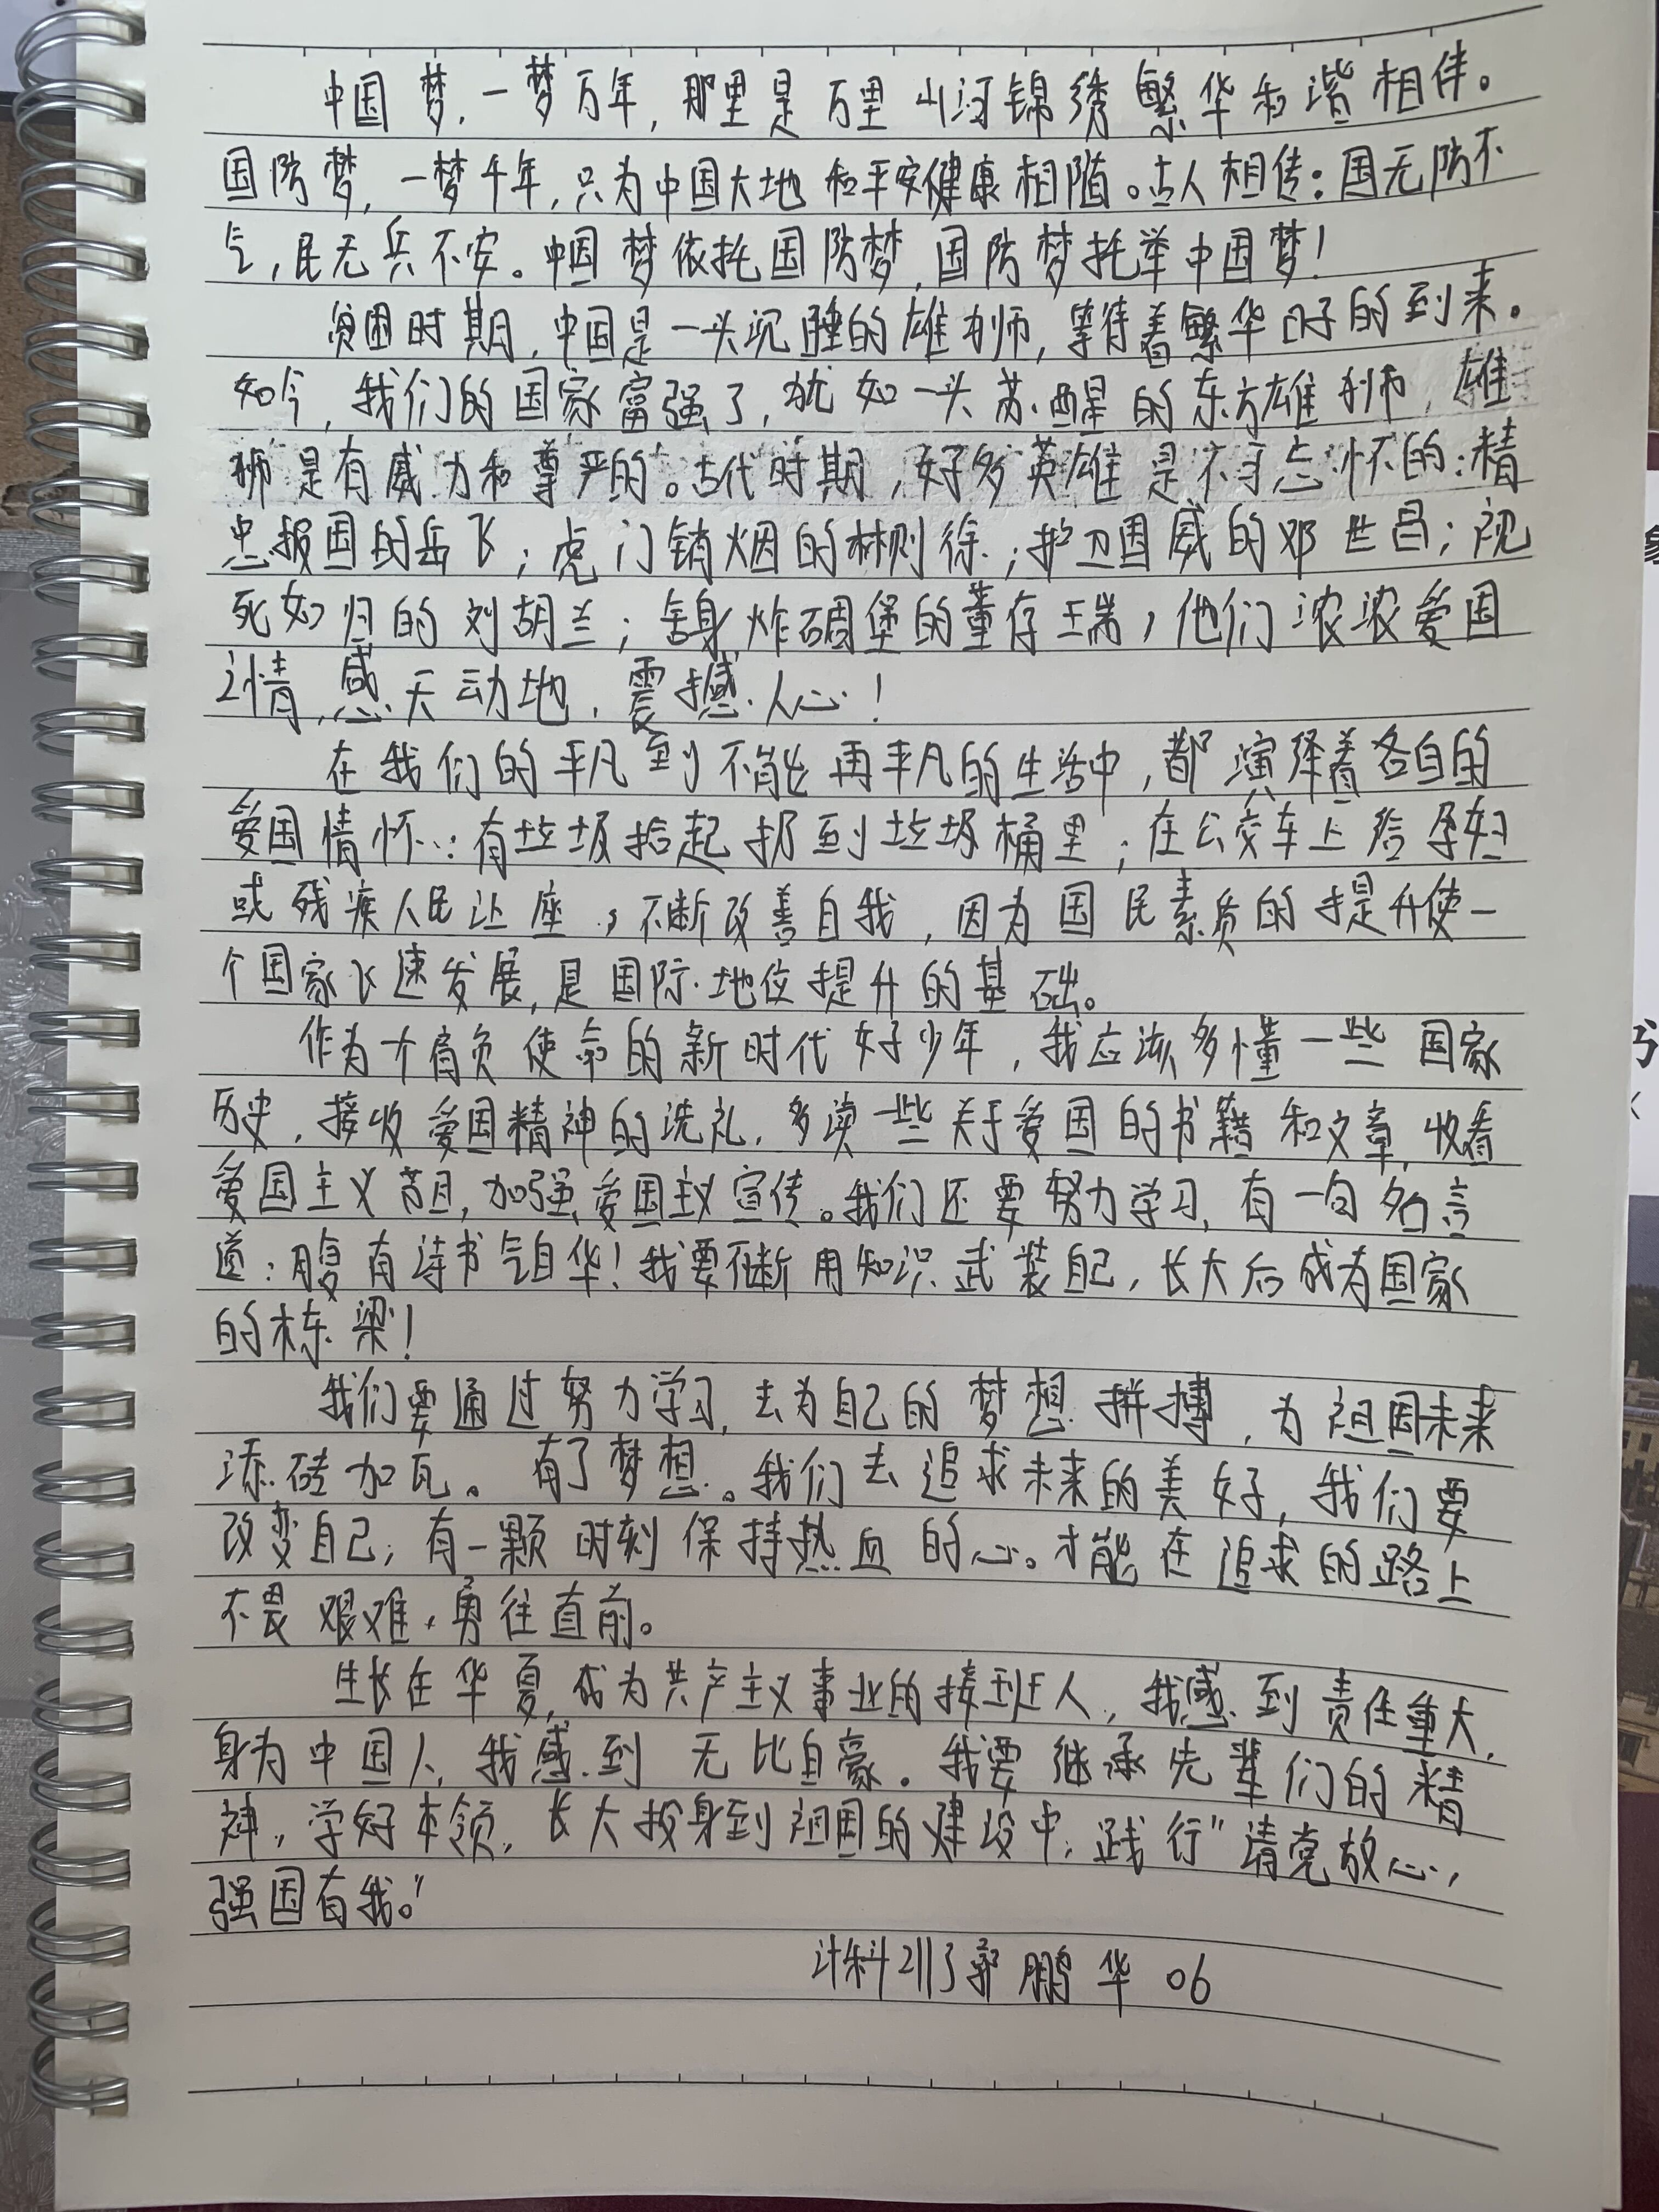 中国梦，一梦万年，那里是万里山河锦绣繁华和谐相伴。
国防梦，一梦千年，只为中国大地和平安健康相随。古人相传：国无防不
立，民无兵不安。中国梦依托国防梦，国防梦托举中国梦！
贫困时期，中国是一头沉睡的雄狮，等待着繁华的到来。
如今，我们的国家富强了，就如一头苏醒的东方雄狮，雄
狮是有威力和尊严的。古代时期，好多英雄是不可忘怀的：精
忠报国的岳飞；虎门销烟的林则徐；护卫国威的邓世昌；视
死如归的刘胡兰；舍身炸碉堡的董存瑞，他们浓浓爱国
之情，感天动地，震撼人心！
在我们的平凡到不能再平凡的生活中，都演绎着各自的
爱国情怀：有垃圾拾起扔到垃圾桶里；在公交车上给孕妇
或残疾人民让座，不断改善自我，因为国民素质的提升使一
个国家飞速发展，是国际地位提升的基础。
作为个肩负使命的新时代好少年，我应该多懂一些国家
历史，接收爱国精神的洗礼，多读一些关于爱国的书籍和文章，收看
爱国主义节目，加强爱国主义宣传。我们还要努力学习，有一句名言
道：腹有诗书气自华！我要不断用知识武装自己，长大后成为国家
的栋梁！
我们要通过努力学习，去为自己的梦想拼搏，为祖国未来
添砖加瓦。有了梦想。我们去追求未来的美好，我们要
改变自己，有一颗时刻保持热血的心。才能在追求的路上
不畏艰难，勇往直前。
生长在华夏，成为共产主义事业的接班人，我感到责任重大，
身为中国人，我感到无比自豪。我要继承先辈们的精
神，学好本领，长大投身到祖国的建设中，践行"请党放心，
强国有我。"
计科2113郭鹏华 06